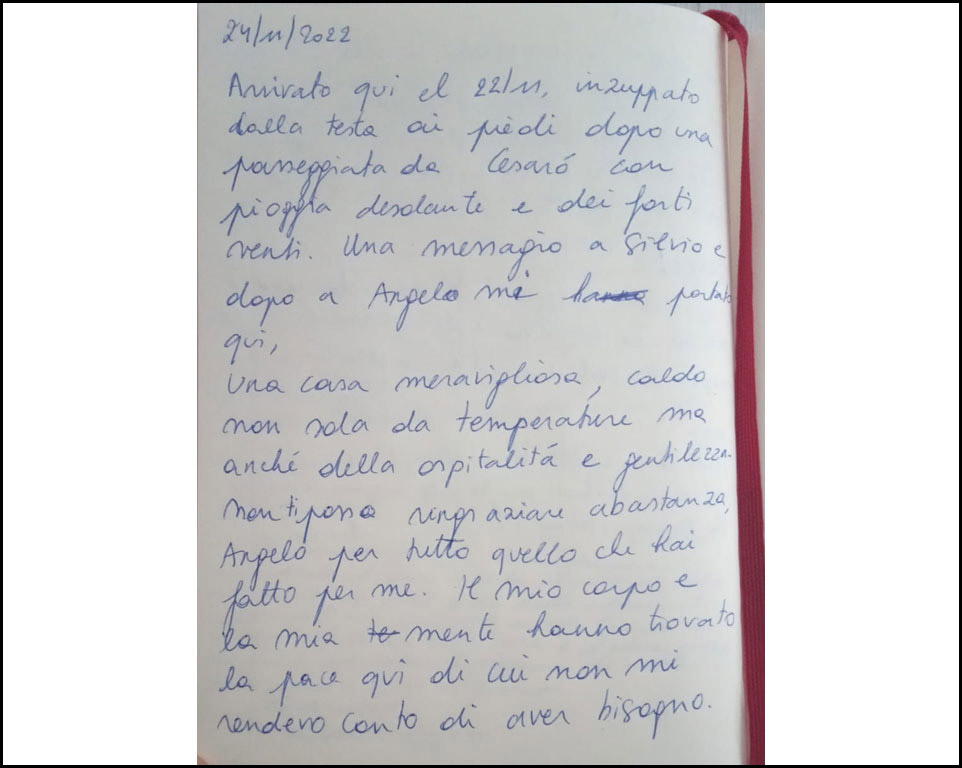 24/11/2022
Arrivato qui el 22/11, inzuppato
dalla testa ai pièdi dopo una
passeggiata da Cesaró con
pioggia desolante e dei forti
venti. Una messagio a Silvio e
dopo a Angelo mi hanno portato
qui,
Una casa meravigliosa, caldo
non sola da temperature ma
anché della ospitalitá e gentilezza.
non ti posso ringraziare abastanza,
Angelo per tutto quello che hai
fatto per me. Il mio corpo e
la mia te mente hanno trovato
la pace qui di cui non mi
rendevo conto di aver bisogno.